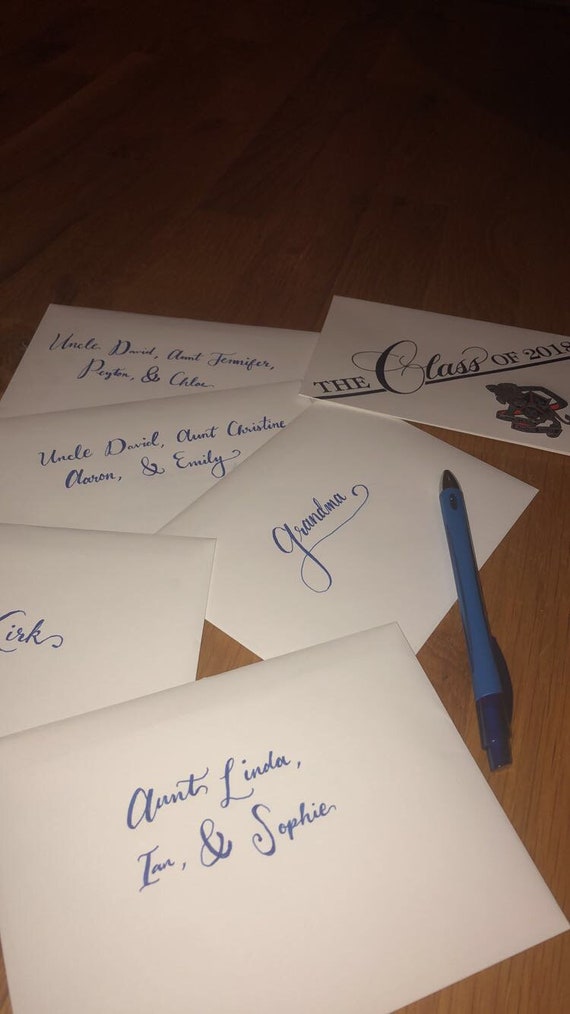 Uncle David, Aunt Jennifer,
Peyton, & Chloe
THE Class OF 2018
Uncle David, Aunt Christine
Aaron, & Emily
Grandma
Kirk
Aunt Linda,
Ian, & Sophie